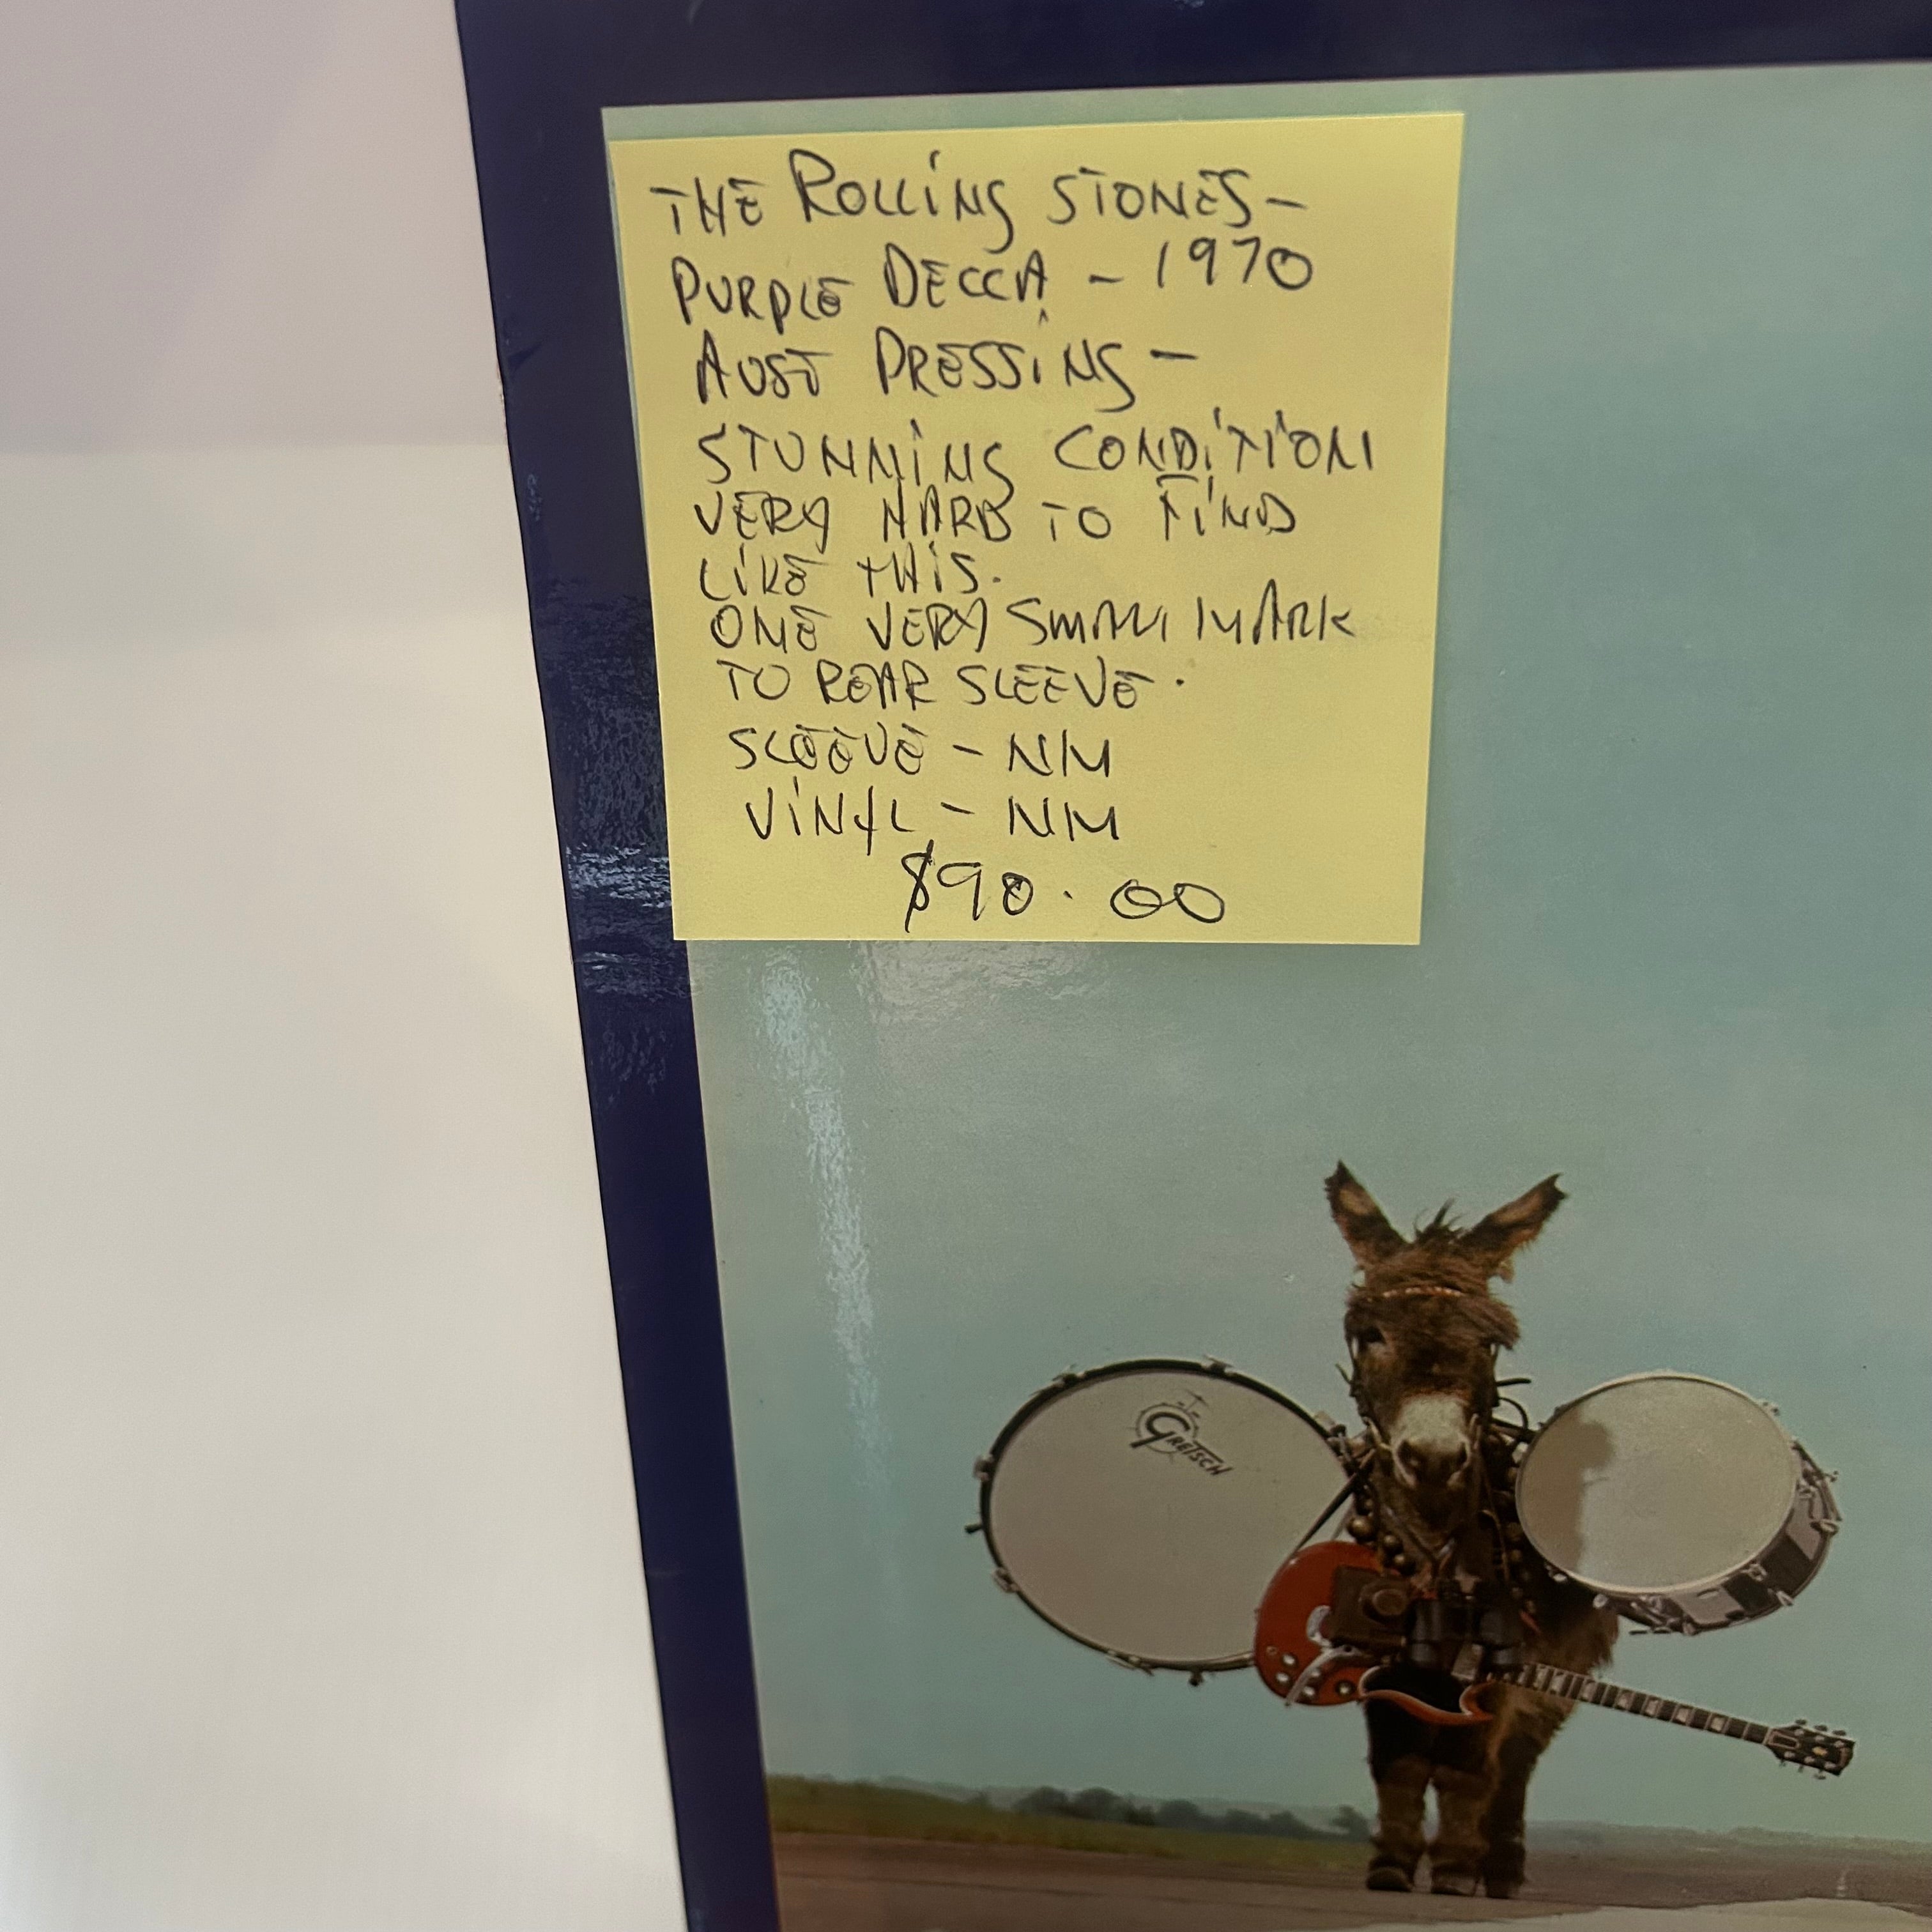 THE ROLLING STONES-
PURPLE DECCA - 1970
AUST PRESSING -
STUNNING CONDITION
VERY HARD TO FIND
LIKE THIS.
ONE VERY SMALL MARK
TO REAR SLEEVE.
SLEEVE - NM
VINYL - NM
$90.00
GRETSCH